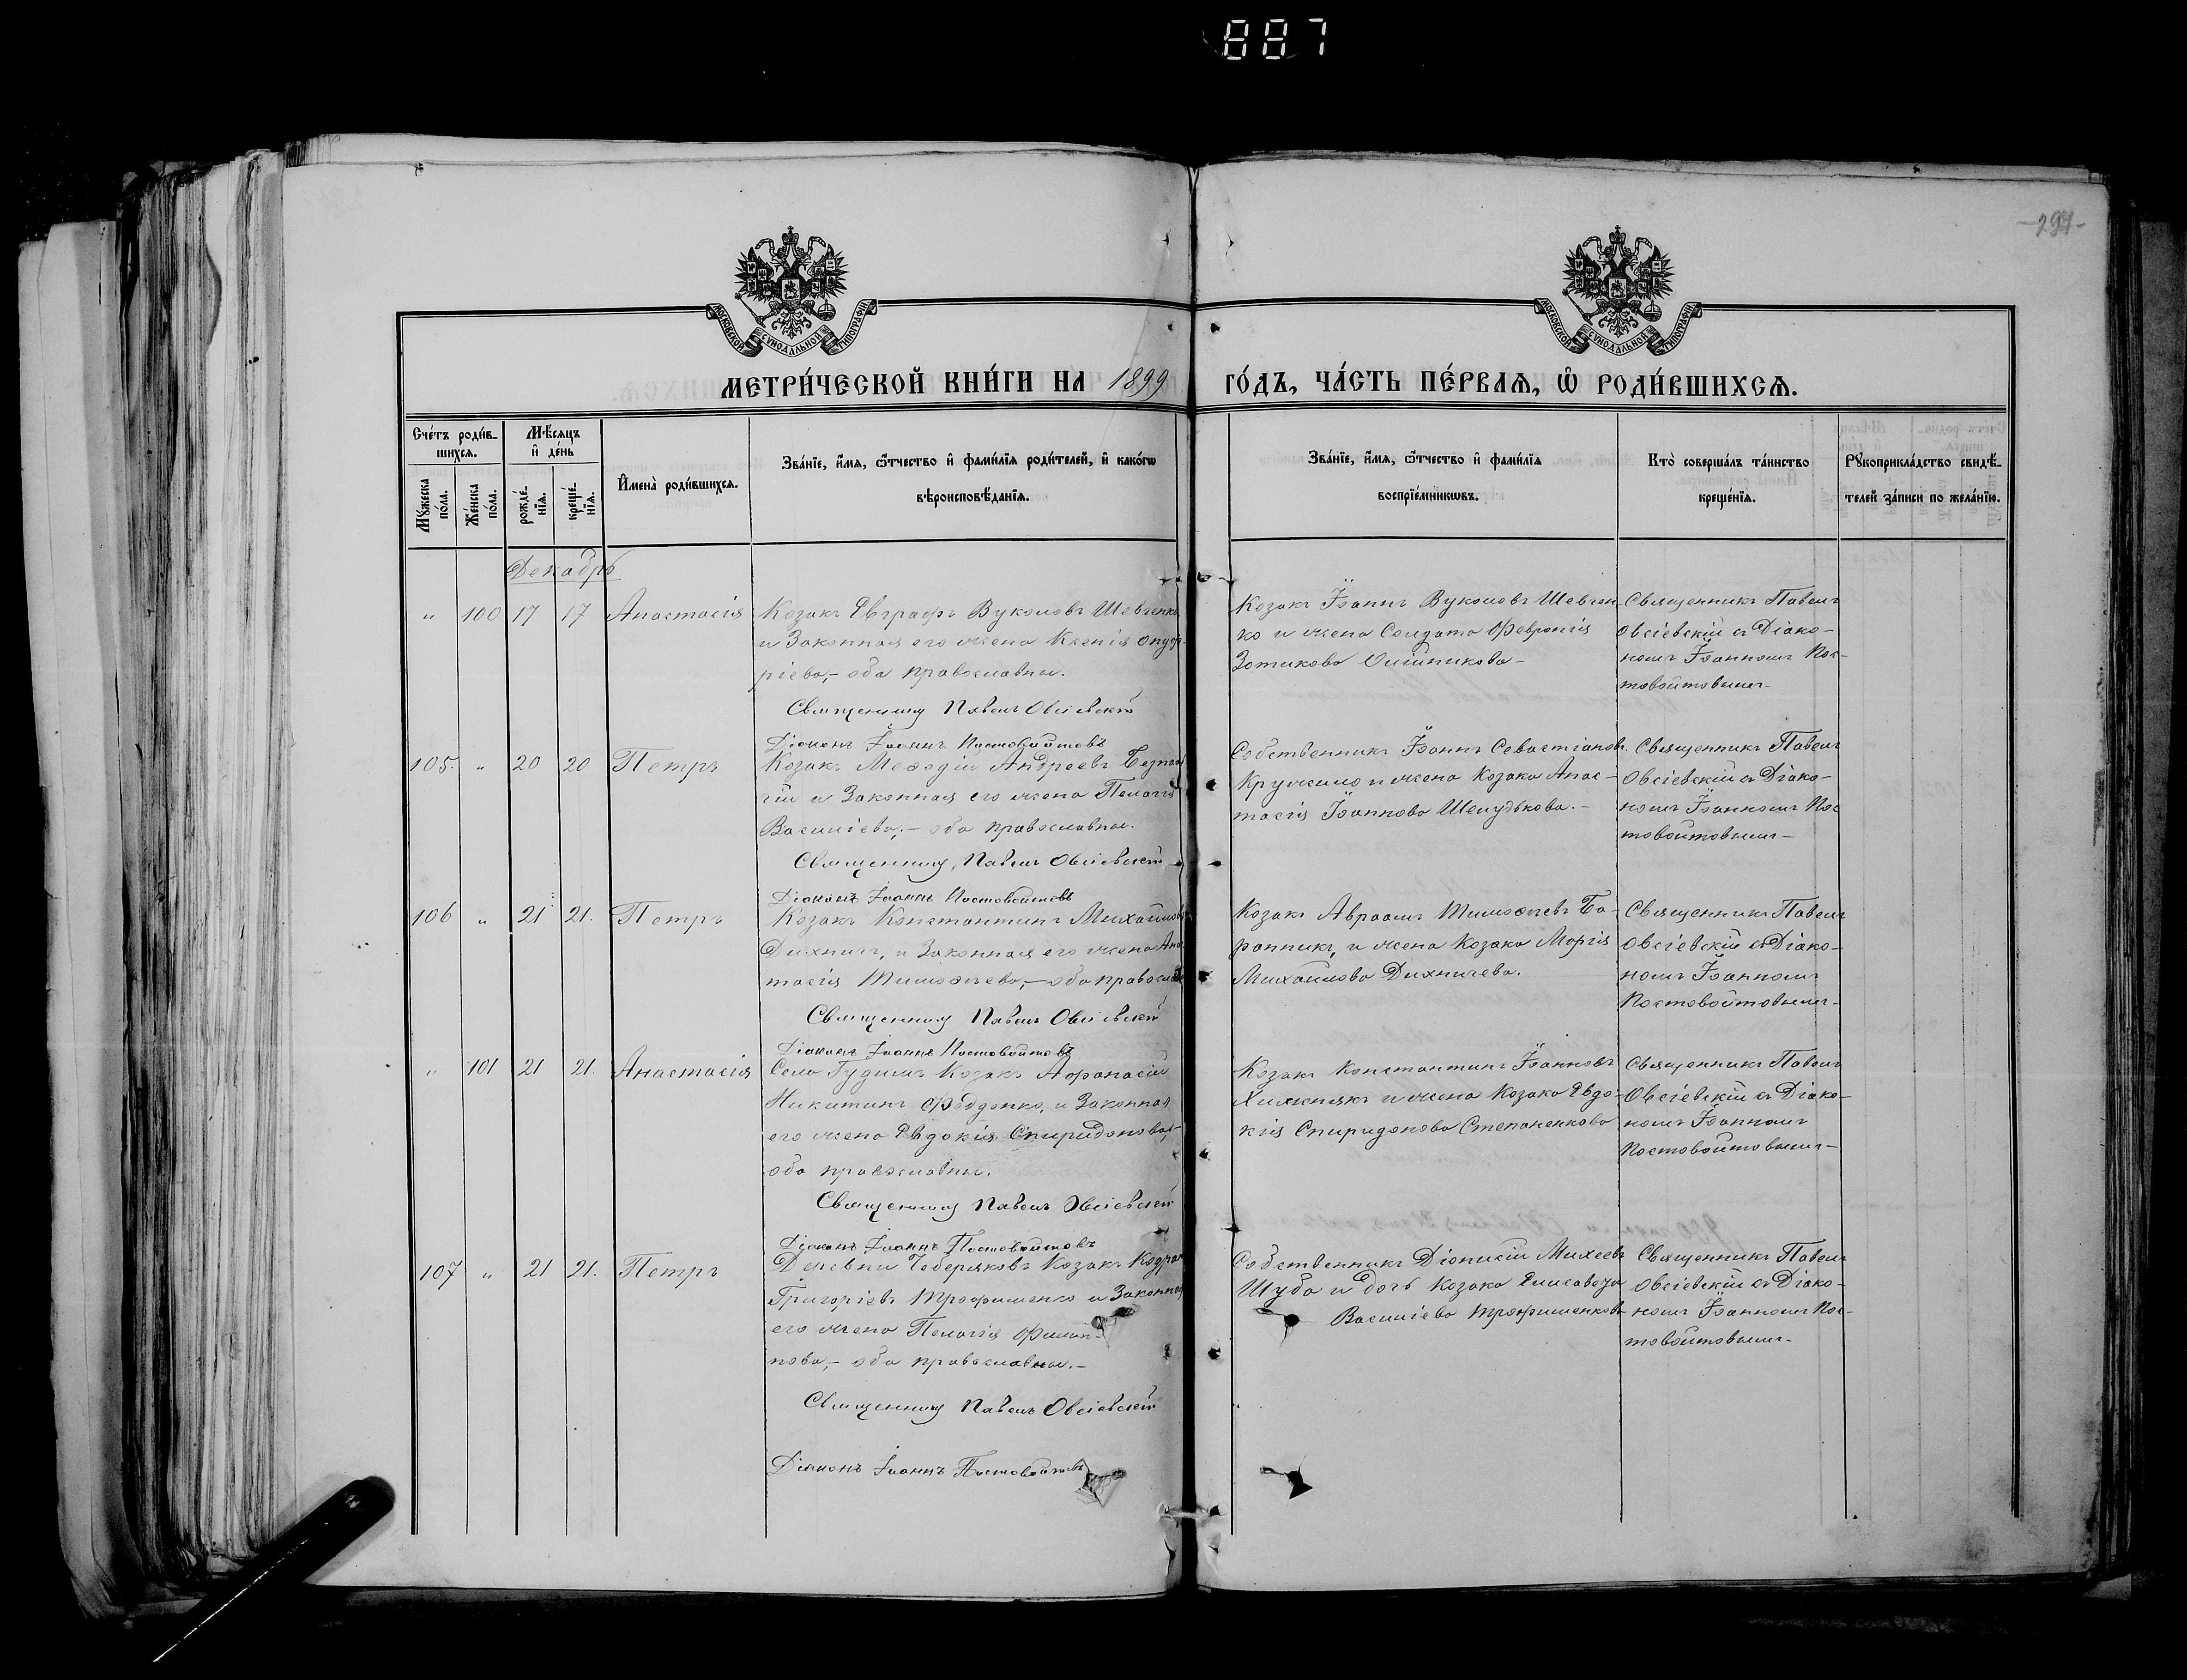 887
-297-
МОСКОВСКОЙ СУНОДАЛЬНОЙ ТИПОГРАФІИ
МОСКОВСКОЙ СУНОДАЛЬНОЙ ТИПОГРАФІИ
МЕТРИ́ЧЕСКОЙ КНИ́ГИ НА 1899 ГО́ДЪ, ЧА́СТЬ ПЕ́РВАѦ, Ѡ҆ РОДИ́ВШИХСѦ.
Сче́тъ роди́в-
шихсѧ.
Мꙋ́жеска по́ла.
Же́нска по́ла.
Мѣ́сѧцъ
и҆ де́нь
рожде́-
нїѧ.
креще́-
нїѧ.
И҆мена̀ роди́вшихсѧ.
Зва́нїе, и҆́мѧ, ѻ҆́тчество и҆ фами́лїѧ роди́телей, и҆ како́гѡ
вѣроисповѣ́данїѧ.
Зва́нїе, и҆́мѧ, ѻ҆́тчество и҆ фами́лїѧ
воспрїе́мникѡвъ.
Кто̀ соверша́лъ та́инство
креще́нїѧ.
Рꙋкоприкла́дство свидѣ́-
телей за́писи по жела́нїю.
Декабрь
" 100 17 17 Анастасія
Козакъ Евграфъ Вуколовъ Шевченко
и Законная его жена Ксенія Онуф-
ріева,- оба православны.
Священникъ Павелъ Овсіевскій
Діаконъ Іоаннъ Постовойтовъ
Козакъ Іоаннъ Вуколовъ Шевчен-
ко и жена Солдата Февронія
Зотикова
Священникъ Павелъ
Овсіевскій съ Діако-
номъ Іоанномъ Пос-
товойтовымъ-
105. " 20 20 Петръ
Козакъ Меѳодій Андреевъ
и Законная его жена Пелагія
Василіева,- оба православны.
Священникъ Павелъ Овсіевскій
Діаконъ Іоаннъ Постовойтовъ
Собственникъ Іоаннъ Севастіановъ
и жена Козака Анас-
тасія Іоаннова Шелудькова.-
Священникъ Павелъ
Овсіевскій съ Діако-
номъ Іоанномъ Пос
товойтовымъ-
106 " 21 21. Петръ
Козакъ Константинъ Михайловъ
Дихничъ, и Законная его жена Анас
тасія Тимоѳеева,- оба православ
Священникъ Павелъ Овсіевскій
Діаконъ Іоаннъ Постовойтовъ
Козакъ Авраамъ Тимоѳеевъ Ба-
ранникъ, и жена Козака Марія
Михайлова Дихничева.
Священникъ Павелъ
Овсіевскій съ Діако-
номъ Іоанномъ
Постовойтовымъ-
" 101 21 21. Анастасія
Села Гудимъ Козакъ Аѳанасій
Никитинъ и Законная
его жена Евдокія Спиридонова,-
оба православны.
Священникъ Павелъ Овсіевскій
Діаконъ Іоаннъ Постовойтовъ
Козакъ Константинъ Іоанновъ
Хижнякъ и жена Козака Евдо-
кія Спиридонова Степаненкова
Священникъ Павелъ
Овсіевскій съ Діако-
номъ Іоанномъ
Постовойтовымъ-
107 " 21 21. Петръ
Деревни Чеберяковъ Козакъ Кодрат
Григоріевъ Трофименко и Законная
его жена Пелагія Филип-
пова,- оба православны.-
Священникъ Павелъ Овсіевскій
Діаконъ Іоаннъ Постовойтовъ
Собственникъ Діонисій Михеевъ
Шуба и дочь Козака Елисавета
Василіева Трофименкова
Священникъ Павелъ
Овсіевскій съ Діако-
номъ Іоанномъ Пос-
товойтовымъ-